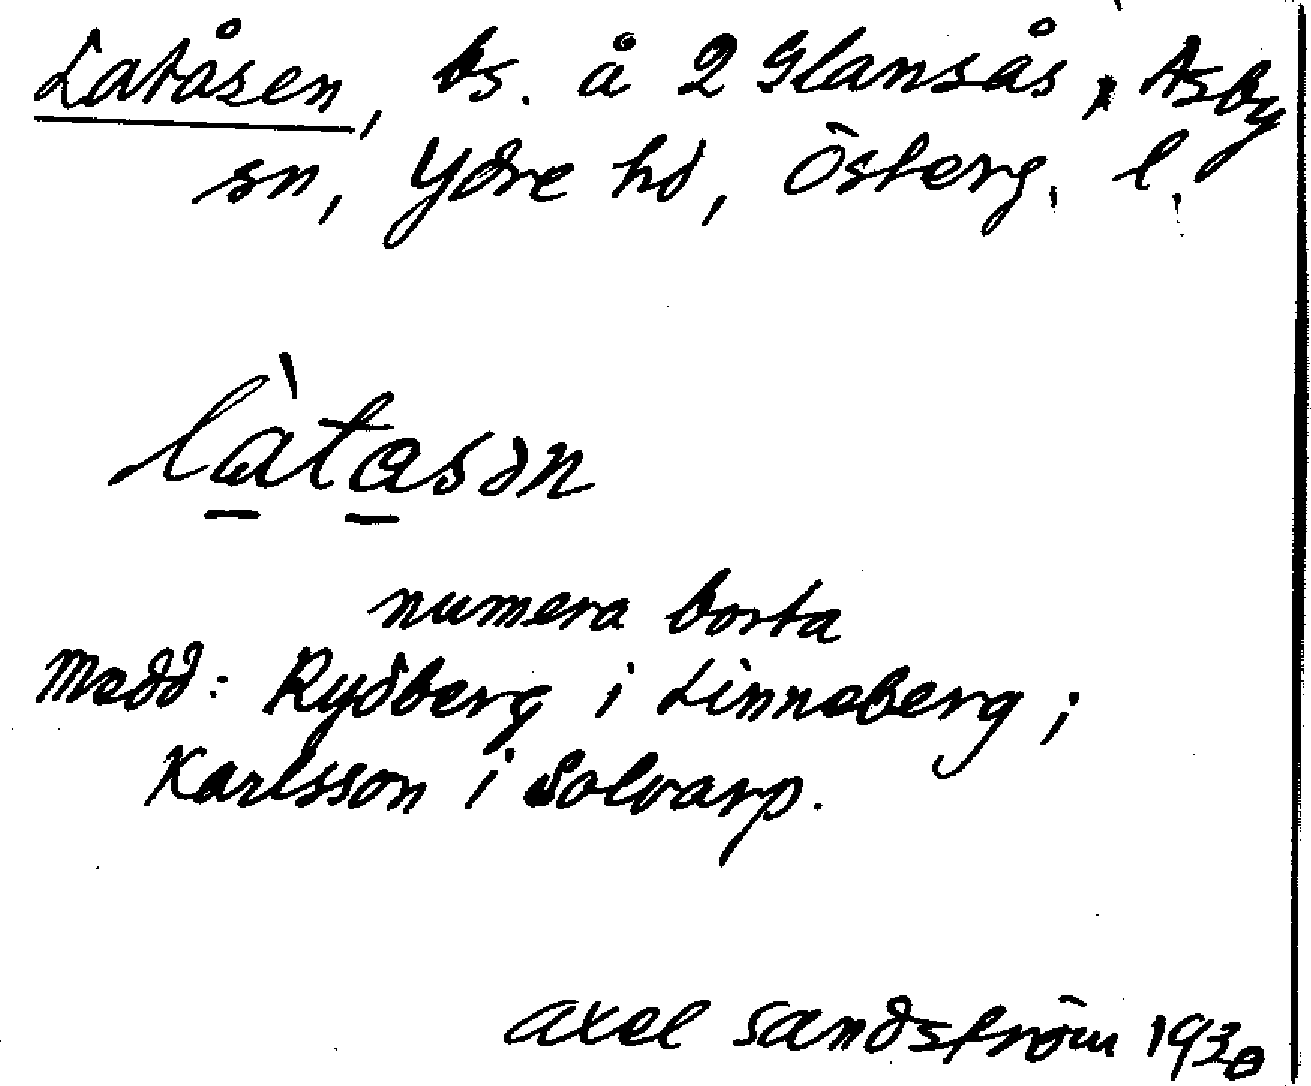 Latåsen, bs. å 2 Glansås, Asby
sn, Ydre hd, Österg. l.
làtasən
numera borta
Medd: Rydberg i Linneberg;
Karlsson i Solvarp.
Axel Sandström 1930